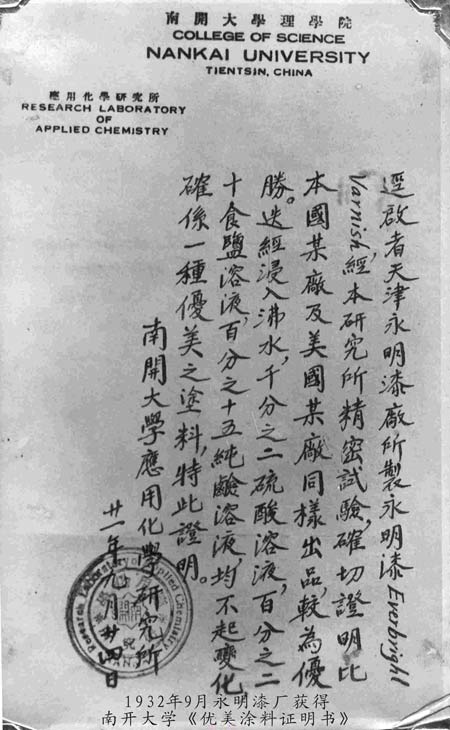 南開大學理學院
COLLEGE OF SCIENCE
NANKAI UNIVERSITY
TIENTSIN, CHINA
應用化學研究所
RESEARCH LABORATORY
OF
APPLIED CHEMISTRY
逕啟者天津永明漆廠所製永明漆Everbright
Varnish經,本研究所精密試驗,確切證明比
本國某廠及美國某廠同樣出品,較為優
勝。迭經浸入沸水,千分之二硫酸溶液,百分之二
十食鹽溶液,百分之十五純鹼溶液,均不起變化,
確係一種優美之塗料,特此證明。
南開大學應用化學研究所
廿一年九月廿四日
Research Laboratory of Applied Chemistry
1932年9月永明漆厂获得
南开大学《优美涂料证明书》